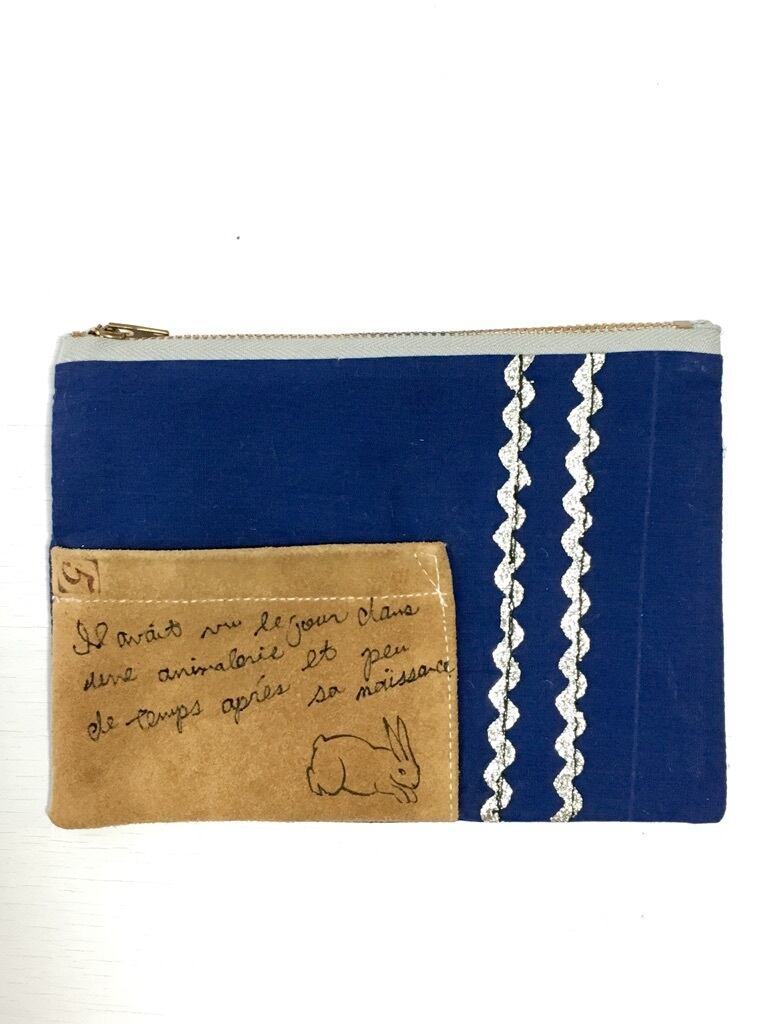 Il avait vu le jour dans
une animalerie et peu
de temps après sa naissance